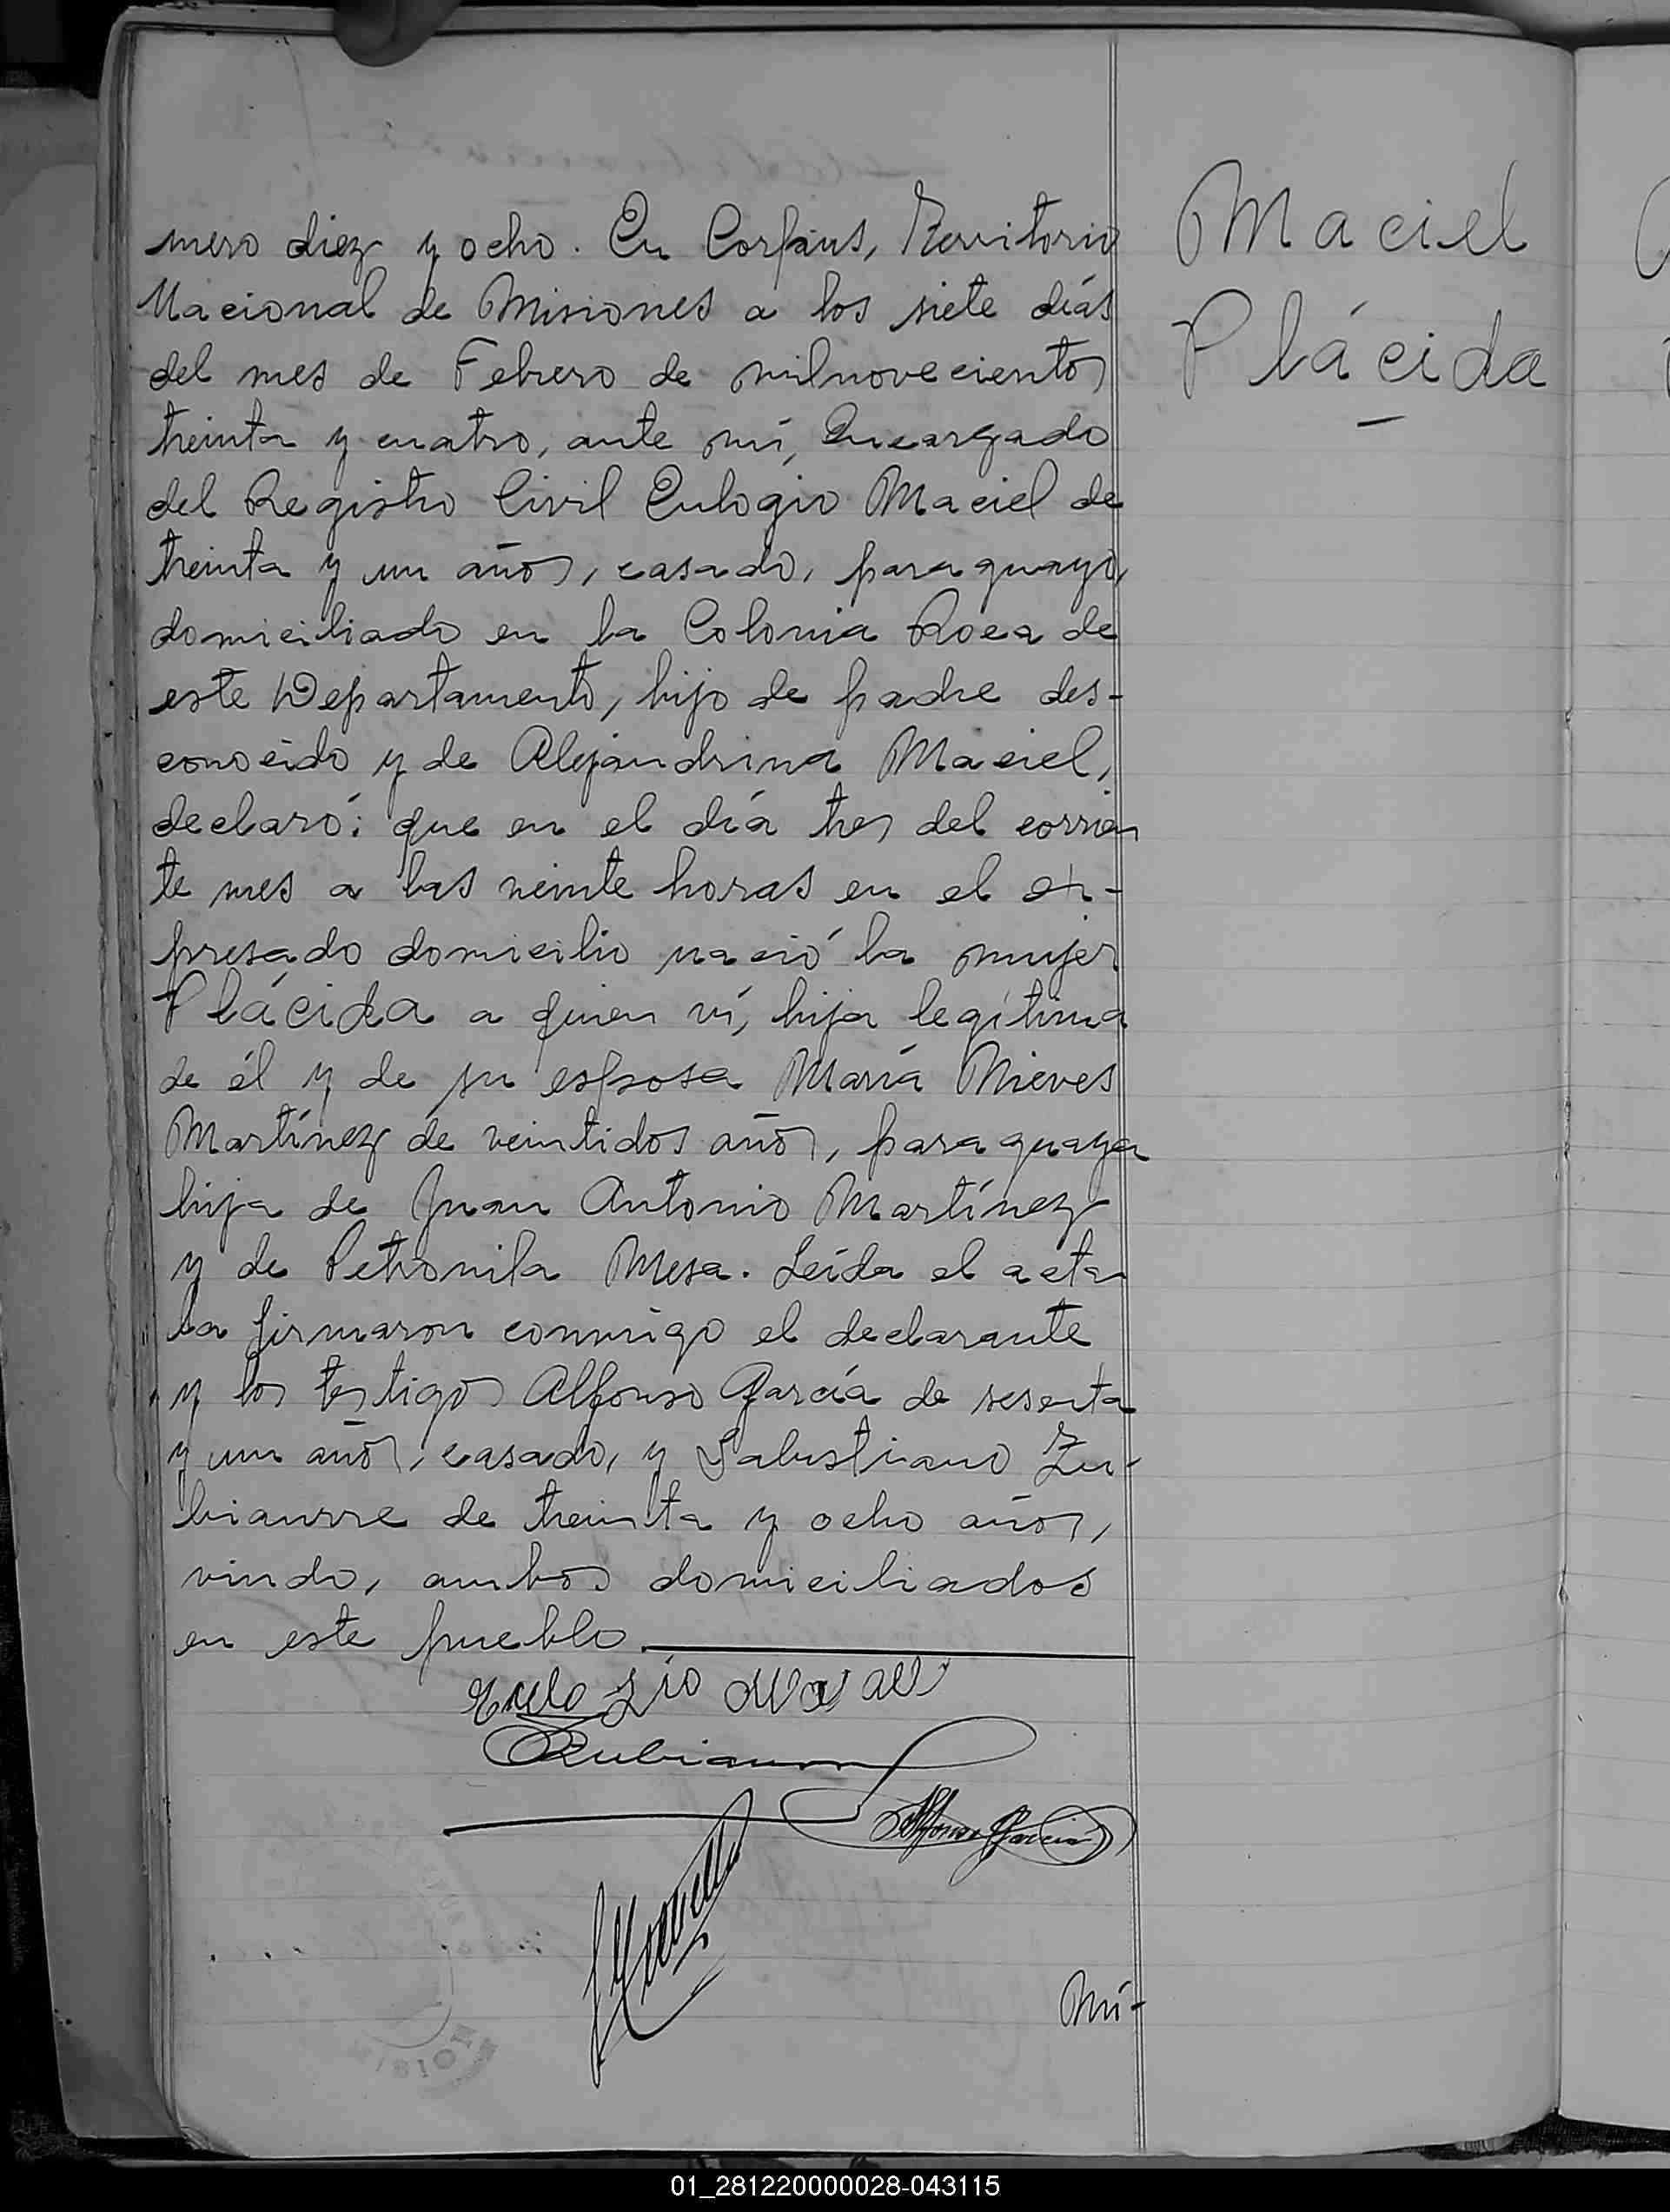 mero diez y ocho. En Corpus, Territorio
Nacional de Misiones a los siete días
del mes de Febrero de milnovecientos
treinta y cuatro, ante mí, Encargado
del Registro Civil Eulogio Maciel de
treinta y un años, casado, paraguayo,
domiciliado en la Colonia Roca de
este Departamento, hijo de padre des-
conocido y de Alejandrina Maciel,
declaró: que en el día tres del corrien
te mes a las veinte horas en el ex-
presado domicilio nació la mujer
Plácida a quien ví, hija legítima
de él y de su esposa María Nieves
Martínez de veintidos años, paraguaya
hija de Juan Antonio Martínez
y de Petronila Mesa. Leída el acta
la firmaron conmigo el declarante
y los testigos Alfonso García de sesenta
y un años, casado, y Salustiano Zu-
biaurre de treinta y ocho años,
viudo, ambos domiciliados
en este pueblo.
Eulogio
Zubiaurre
Alfonso García
Nú-
Maciel
Plácida
01_281220000028-043115